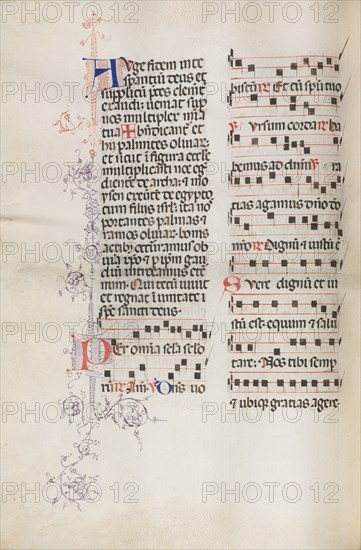 AUge fidem in te
sperantium deus et
supplicum preces clemen
ter audi: ueniat sup
nos multiplex mi
tua
bñdicanť et
hii palmites oliuar:
et sicut i figura eccle
multiplicasti noe eg
diente de archa: et mo
ysen exeunte de egypto
cum filiis isrl: ita nos
portantes palmas et
ramos oliuar: bonis
actibus occuramus ob
uia xpo et p ipsum gau
dium introeamus eter
num. Qui tecum uiuit
et regnat i unitate i
spẽ sancti deus.
PEr omnia secula seculo
rum. Amen. Dominus uo
biscum. Et cum spiritu tuo
Sursum corda. ha
bemus ad dominum.
gracias agamus domino deo
nostro. Dignum et iustum est.
Uere dignum et iu
stum est: equum et salu
tare: Nos tibi semper
et ubique gracias agere
PHOTO12